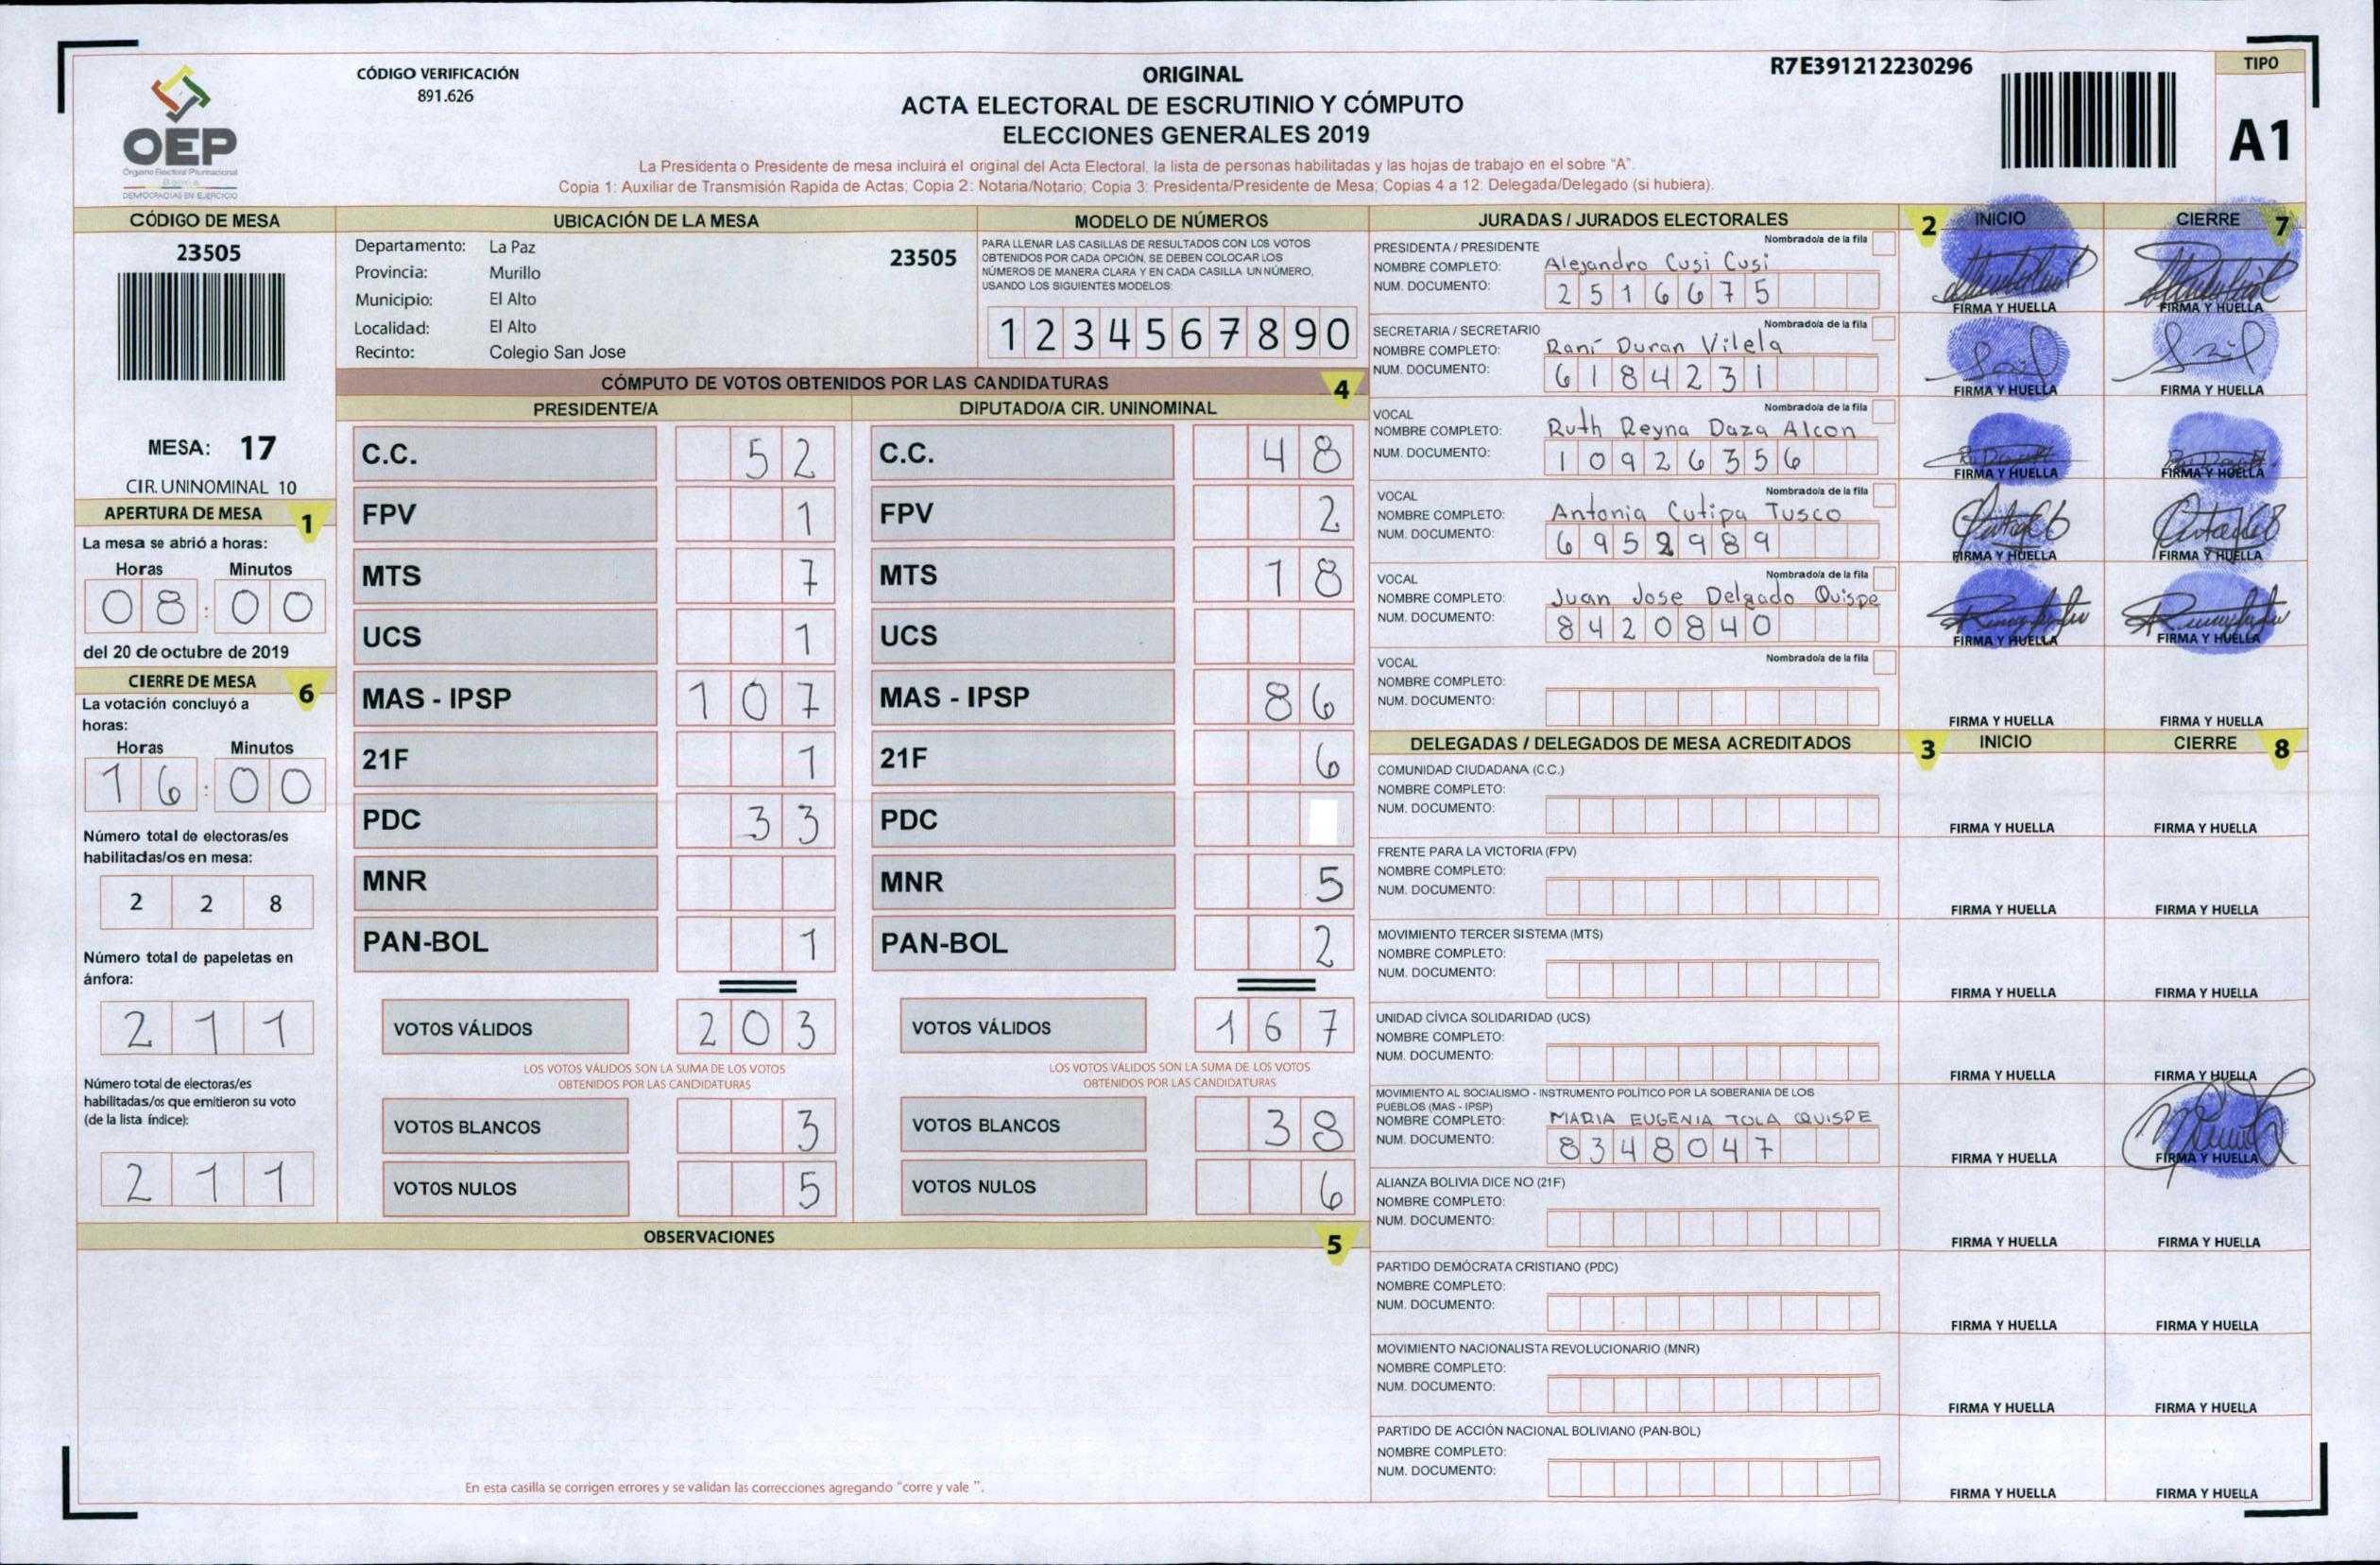 OEP
Órgano Electoral Plurinacional
Bolivia
DEMOCRACIAS EN EJERCICIO
CÓDIGO VERIFICACIÓN
891.626
ORIGINAL
ACTA ELECTORAL DE ESCRUTINIO Y CÓMPUTO
ELECCIONES GENERALES 2019
La Presidenta o Presidente de mesa incluirá el original del Acta Electoral, la lista de personas habilitadas y las hojas de trabajo en el sobre "A".
Copia 1: Auxiliar de Transmisión Rapida de Actas; Copia 2: Notaria/Notario; Copia 3: Presidenta/Presidente de Mesa; Copias 4 a 12: Delegada/Delegado (si hubiera).
R7E391212230296
TIPO
A1
CÓDIGO DE MESA
23505
MESA: 17
CIR. UNINOMINAL 10
APERTURA DE MESA 1
La mesa se abrió a horas:
Horas Minutos
08:00
del 20 de octubre de 2019
CIERRE DE MESA 6
La votación concluyó a
horas:
Horas Minutos
16:00
Número total de electoras/es
habilitadas/os en mesa:
2 2 8
Número total de papeletas en
ánfora:
2 1 1
Número total de electoras/es
habilitadas/os que emitieron su voto
(de la lista índice):
2 1 1
UBICACIÓN DE LA MESA
Departamento: La Paz 23505
Provincia: Murillo
Municipio: El Alto
Localidad: El Alto
Recinto: Colegio San Jose
MODELO DE NÚMEROS
PARA LLENAR LAS CASILLAS DE RESULTADOS CON LOS VOTOS
OBTENIDOS POR CADA OPCIÓN, SE DEBEN COLOCAR LOS
NÚMEROS DE MANERA CLARA Y EN CADA CASILLA UN NÚMERO,
USANDO LOS SIGUIENTES MODELOS:
1 2 3 4 5 6 7 8 9 0
CÓMPUTO DE VOTOS OBTENIDOS POR LAS CANDIDATURAS 4
PRESIDENTE/A DIPUTADO/A CIR. UNINOMINAL
C.C. 52 C.C. 48
FPV 1 FPV 2
MTS 7 MTS 18
UCS 1 UCS
MAS - IPSP 107 MAS - IPSP 86
21F 1 21F 6
PDC 33 PDC
MNR MNR 5
PAN-BOL 1 PAN-BOL 2
VOTOS VÁLIDOS 203 VOTOS VÁLIDOS 167
LOS VOTOS VÁLIDOS SON LA SUMA DE LOS VOTOS LOS VOTOS VÁLIDOS SON LA SUMA DE LOS VOTOS
OBTENIDOS POR LAS CANDIDATURAS OBTENIDOS POR LAS CANDIDATURAS
VOTOS BLANCOS 3 VOTOS BLANCOS 38
VOTOS NULOS 5 VOTOS NULOS 6
OBSERVACIONES 5
En esta casilla se corrigen errores y se validan las correcciones agregando "corre y vale ".
JURADAS / JURADOS ELECTORALES 2 INICIO CIERRE 7
PRESIDENTA / PRESIDENTE Nombrado/a de la fila
NOMBRE COMPLETO: Alejandro Cusi Cusi
NUM. DOCUMENTO: 2516675
FIRMA Y HUELLA FIRMA Y HUELLA
SECRETARIA / SECRETARIO Nombrado/a de la fila
NOMBRE COMPLETO: Raní Duran Vilela
NUM. DOCUMENTO: 6184231
FIRMA Y HUELLA FIRMA Y HUELLA
VOCAL Nombrado/a de la fila
NOMBRE COMPLETO: Ruth Reyna Daza Alcon
NUM. DOCUMENTO: 10926356
FIRMA Y HUELLA FIRMA Y HUELLA
VOCAL Nombrado/a de la fila
NOMBRE COMPLETO: Antonia Cutipa Tusco
NUM. DOCUMENTO: 6952989
FIRMA Y HUELLA FIRMA Y HUELLA
VOCAL Nombrado/a de la fila
NOMBRE COMPLETO: Juan Jose Delgado Quispe
NUM. DOCUMENTO: 8420840
FIRMA Y HUELLA FIRMA Y HUELLA
VOCAL Nombrado/a de la fila
NOMBRE COMPLETO:
NUM. DOCUMENTO:
FIRMA Y HUELLA FIRMA Y HUELLA
DELEGADAS / DELEGADOS DE MESA ACREDITADOS 3 INICIO CIERRE 8
COMUNIDAD CIUDADANA (C.C.)
NOMBRE COMPLETO:
NUM. DOCUMENTO:
FIRMA Y HUELLA FIRMA Y HUELLA
FRENTE PARA LA VICTORIA (FPV)
NOMBRE COMPLETO:
NUM. DOCUMENTO:
FIRMA Y HUELLA FIRMA Y HUELLA
MOVIMIENTO TERCER SISTEMA (MTS)
NOMBRE COMPLETO:
NUM. DOCUMENTO:
FIRMA Y HUELLA FIRMA Y HUELLA
UNIDAD CÍVICA SOLIDARIDAD (UCS)
NOMBRE COMPLETO:
NUM. DOCUMENTO:
FIRMA Y HUELLA FIRMA Y HUELLA
MOVIMIENTO AL SOCIALISMO - INSTRUMENTO POLÍTICO POR LA SOBERANIA DE LOS
PUEBLOS (MAS - IPSP)
NOMBRE COMPLETO: MARIA EUGENIA TOLA QUISPE
NUM. DOCUMENTO: 8348047
FIRMA Y HUELLA FIRMA Y HUELLA
ALIANZA BOLIVIA DICE NO (21F)
NOMBRE COMPLETO:
NUM. DOCUMENTO:
FIRMA Y HUELLA FIRMA Y HUELLA
PARTIDO DEMÓCRATA CRISTIANO (PDC)
NOMBRE COMPLETO:
NUM. DOCUMENTO:
FIRMA Y HUELLA FIRMA Y HUELLA
MOVIMIENTO NACIONALISTA REVOLUCIONARIO (MNR)
NOMBRE COMPLETO:
NUM. DOCUMENTO:
FIRMA Y HUELLA FIRMA Y HUELLA
PARTIDO DE ACCIÓN NACIONAL BOLIVIANO (PAN-BOL)
NOMBRE COMPLETO:
NUM. DOCUMENTO:
FIRMA Y HUELLA FIRMA Y HUELLA